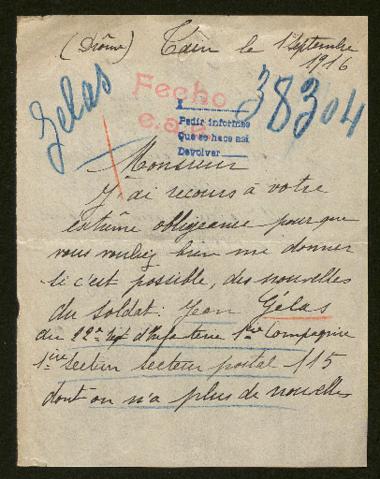 (Drôme) Tain le 1er Septembre
1916
Gelas
38304
Fecho
Pedir informes
Que se hace así
Devolver
Monsieur
J'ai recours à votre
extrême obligeance pour que
vous vouliez bien me donner
si c'est possible, des nouvelles
du soldat: Jean Gélas
du 22e Rgt d'Infanterie 1ère Compagnie
1ère section secteur postal 115
dont on n'a plus de nouvelles